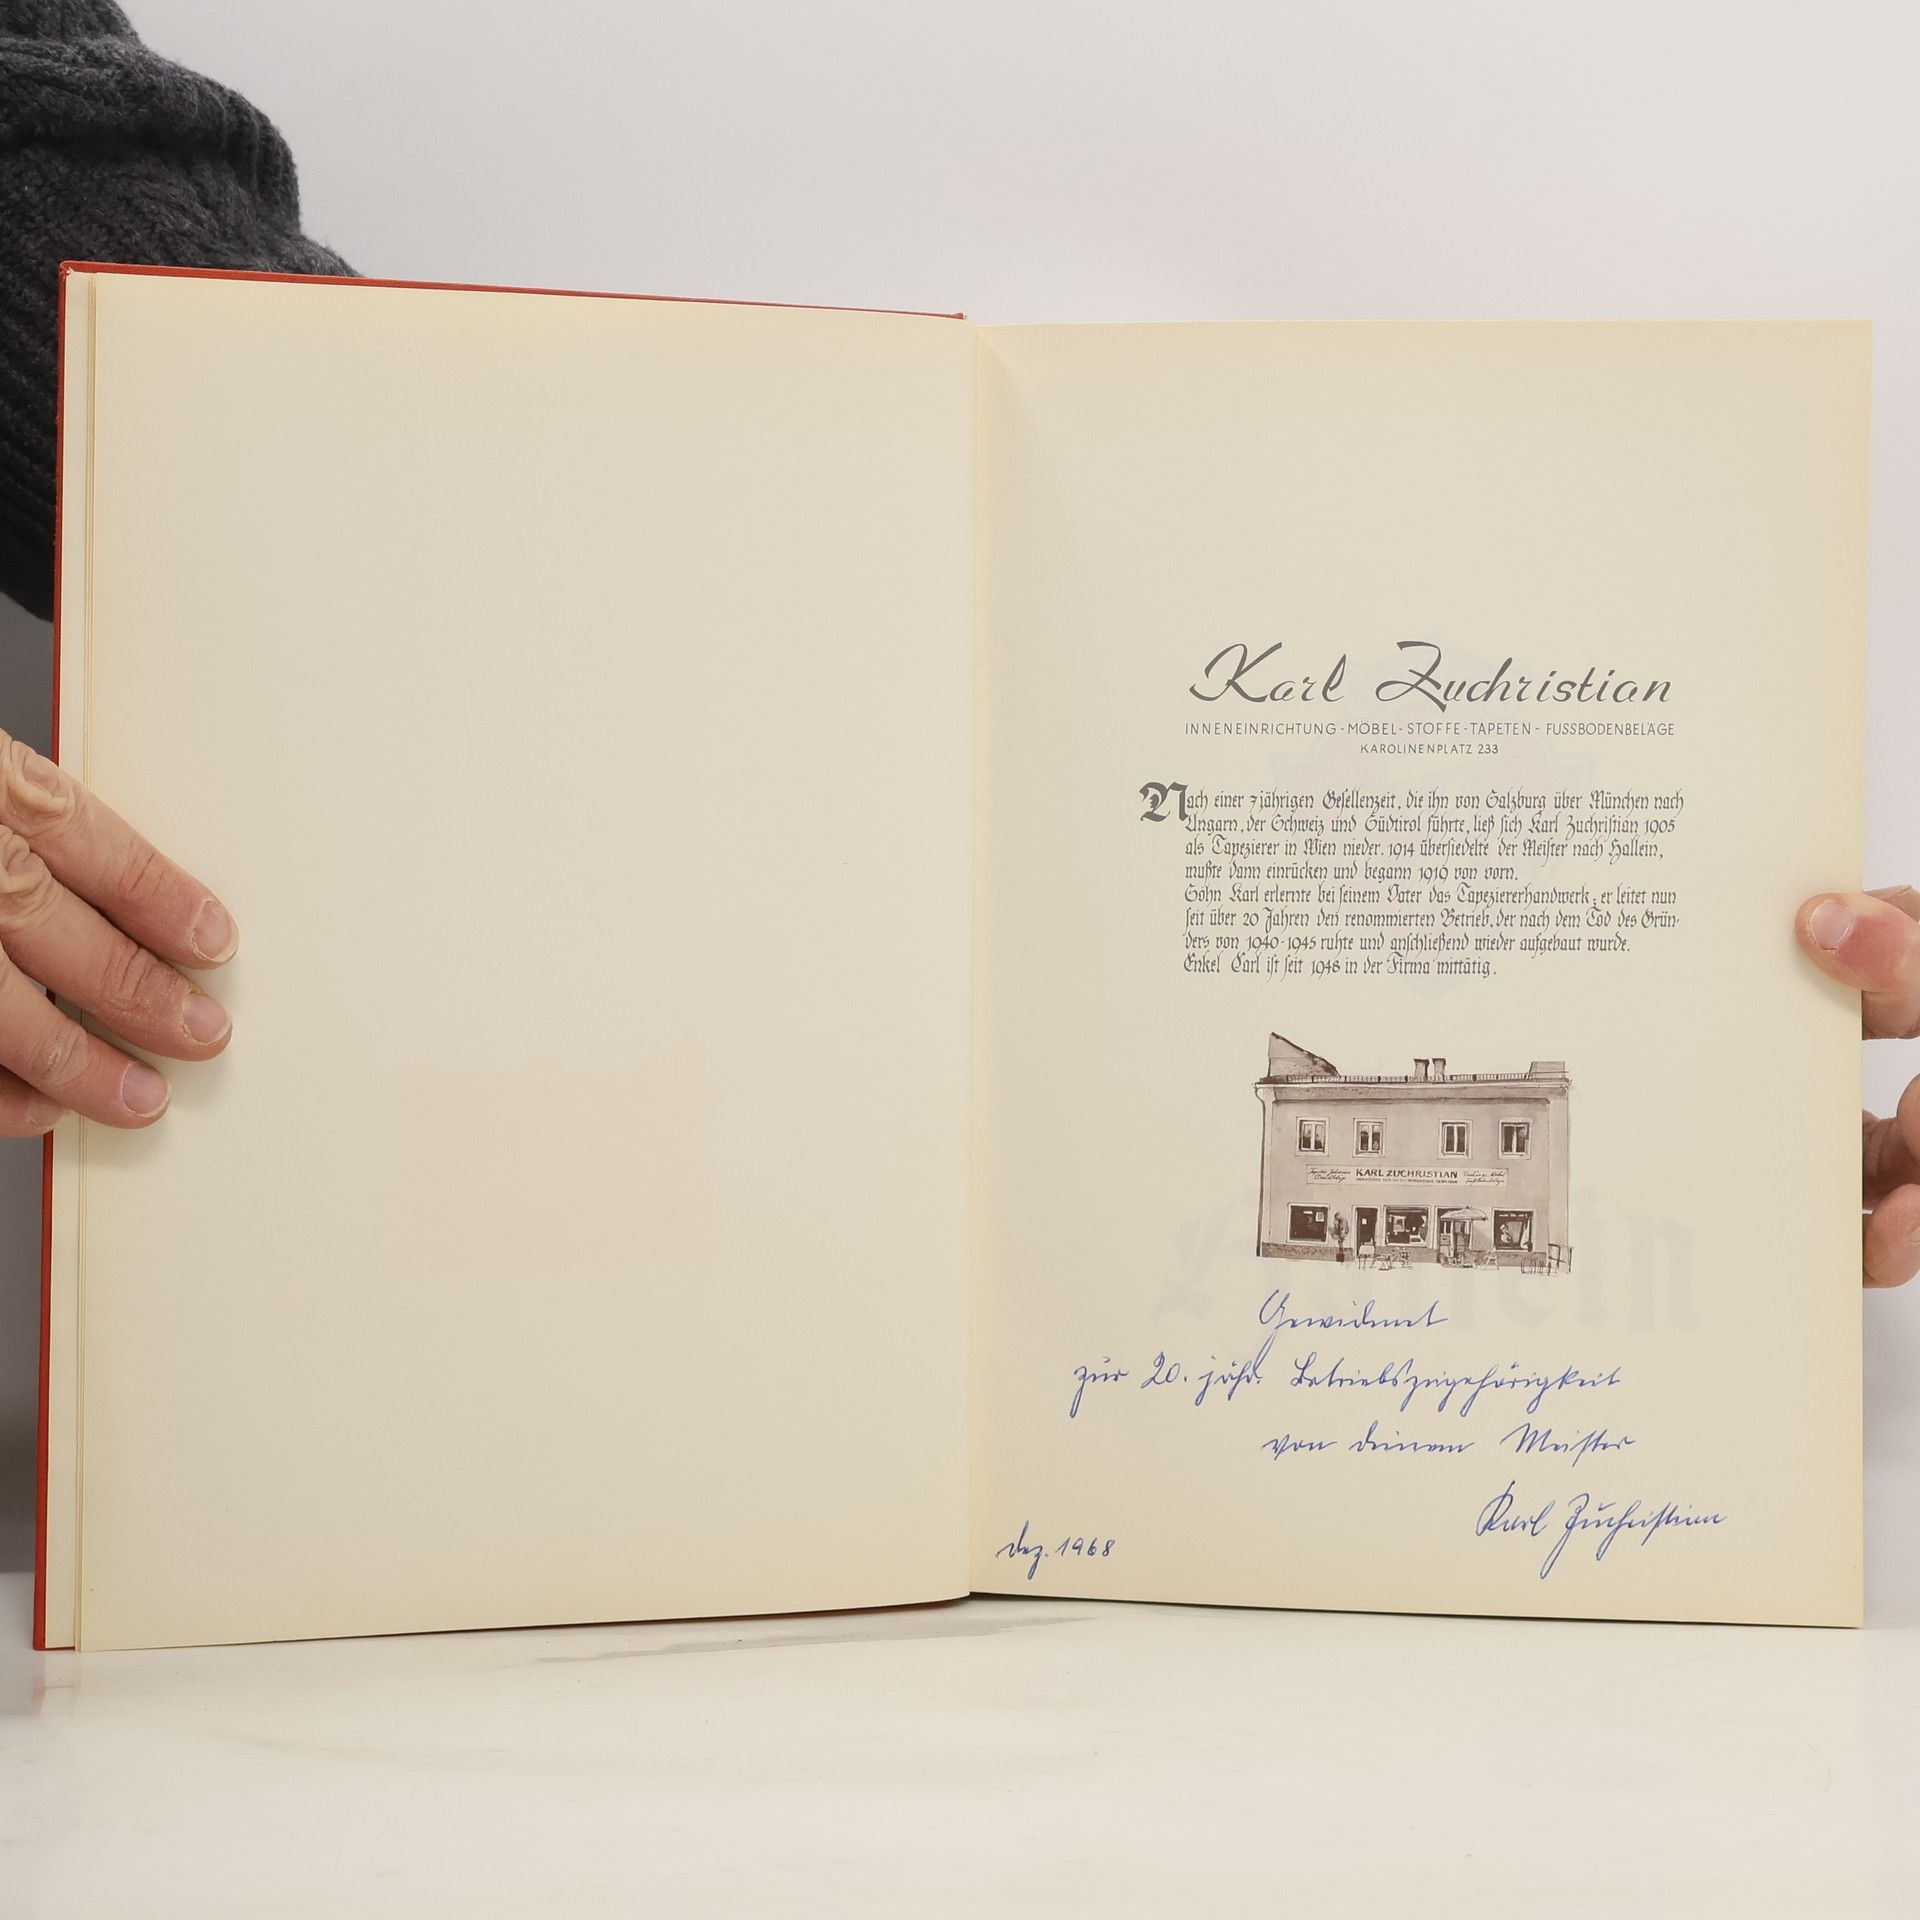 Karl Zuchristian
INNENEINRICHTUNG - MÖBEL - STOFFE - TAPETEN - FUSSBODENBELÄGE
KAROLINENPLATZ 233
Nach einer 7jährigen Gesellenzeit, die ihn von Salzburg über München nach
Ungarn, der Schweiz und Südtirol führte, ließ sich Karl Zuchristian 1905
als Tapezierer in Wien nieder. 1914 übersiedelte der Meister nach Hallein,
mußte dann einrücken und begann 1919 von vorn.
Sohn Karl erlernte bei seinem Vater das Tapeziererhandwerk; er leitet nun
seit über 20 Jahren den renommierten Betrieb, der nach dem Tod des Grün-
ders von 1940-1945 ruhte und anschließend wieder aufgebaut wurde.
Enkel Carl ist seit 1948 in der Firma mittätig.
KARL ZUCHRISTIAN
Gewidmet
zur 20. jähr. Betriebszugehörigkeit
von deinem Meister
Karl Zuchristian
Dez. 1968